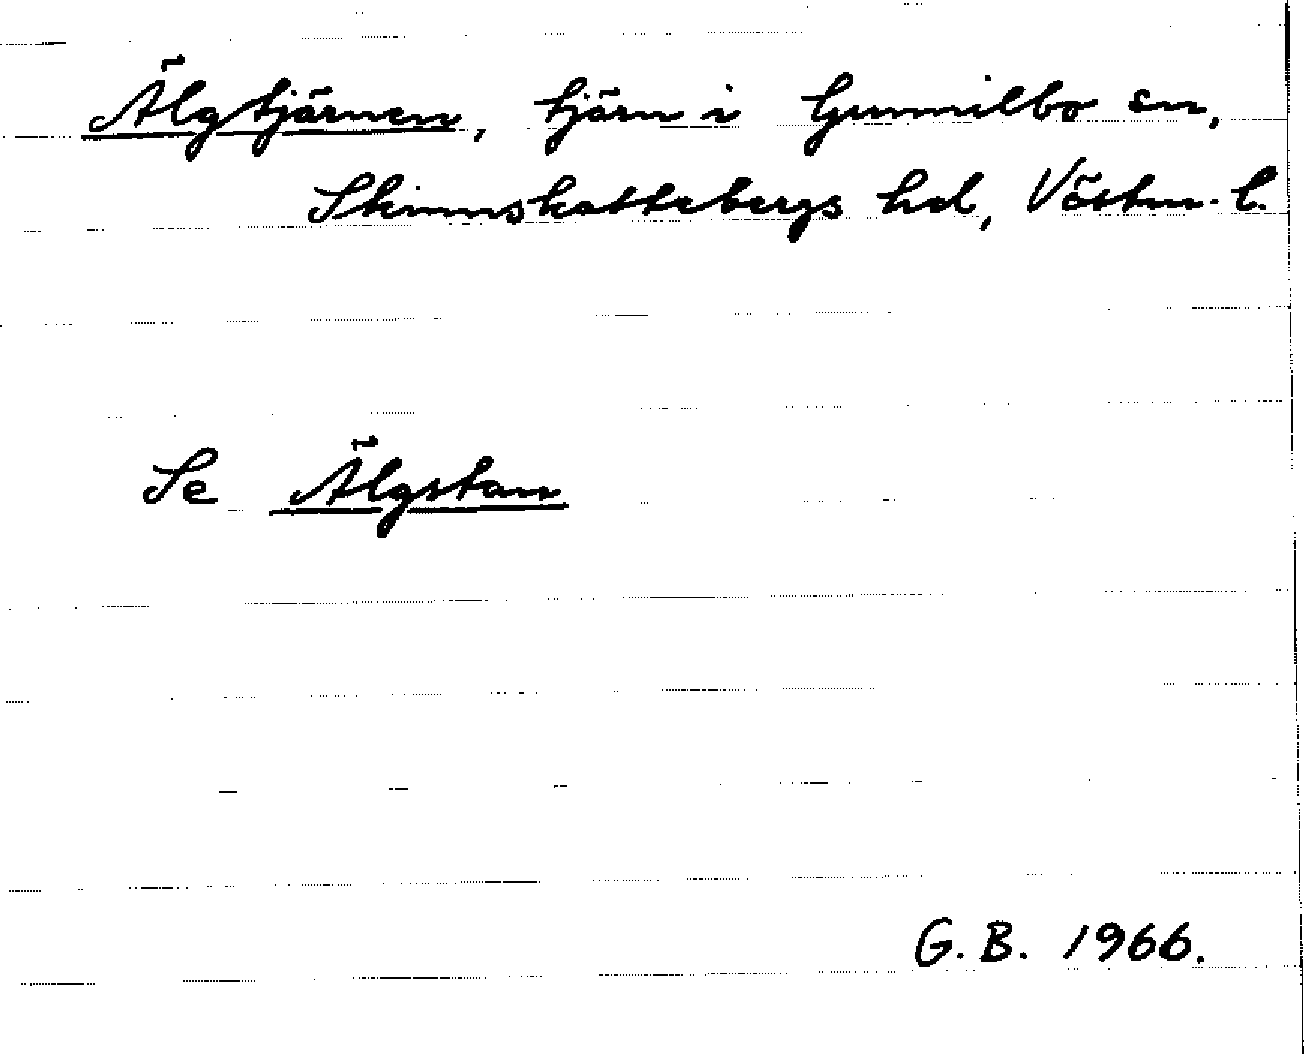 Älgtjärnen, tjärn i Gunnilbo sn,
Skinnskattebergs hd, Västm. l.
Se Älgstan
G. B. 1966.